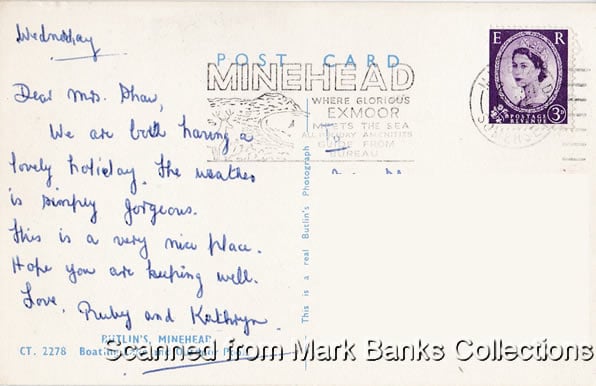 Wednesday
POST CARD
MINEHEAD
WHERE GLORIOUS
EXMOOR
MEETS THE SEA
ALL HOLIDAY AMENITIES
GUIDE FROM
BUREAU
E R
POSTAGE
3D
Dear Mrs. Shaw,
We are both having a
lovely holiday. The weather
is simply gorgeous.
This is a very nice place.
Hope you are keeping well.
Love, Ruby and Kathryn
This is a real Butlin's Photograph
BUTLIN'S, MINEHEAD
CT. 2278 Boating
Scanned from Mark Banks Collections